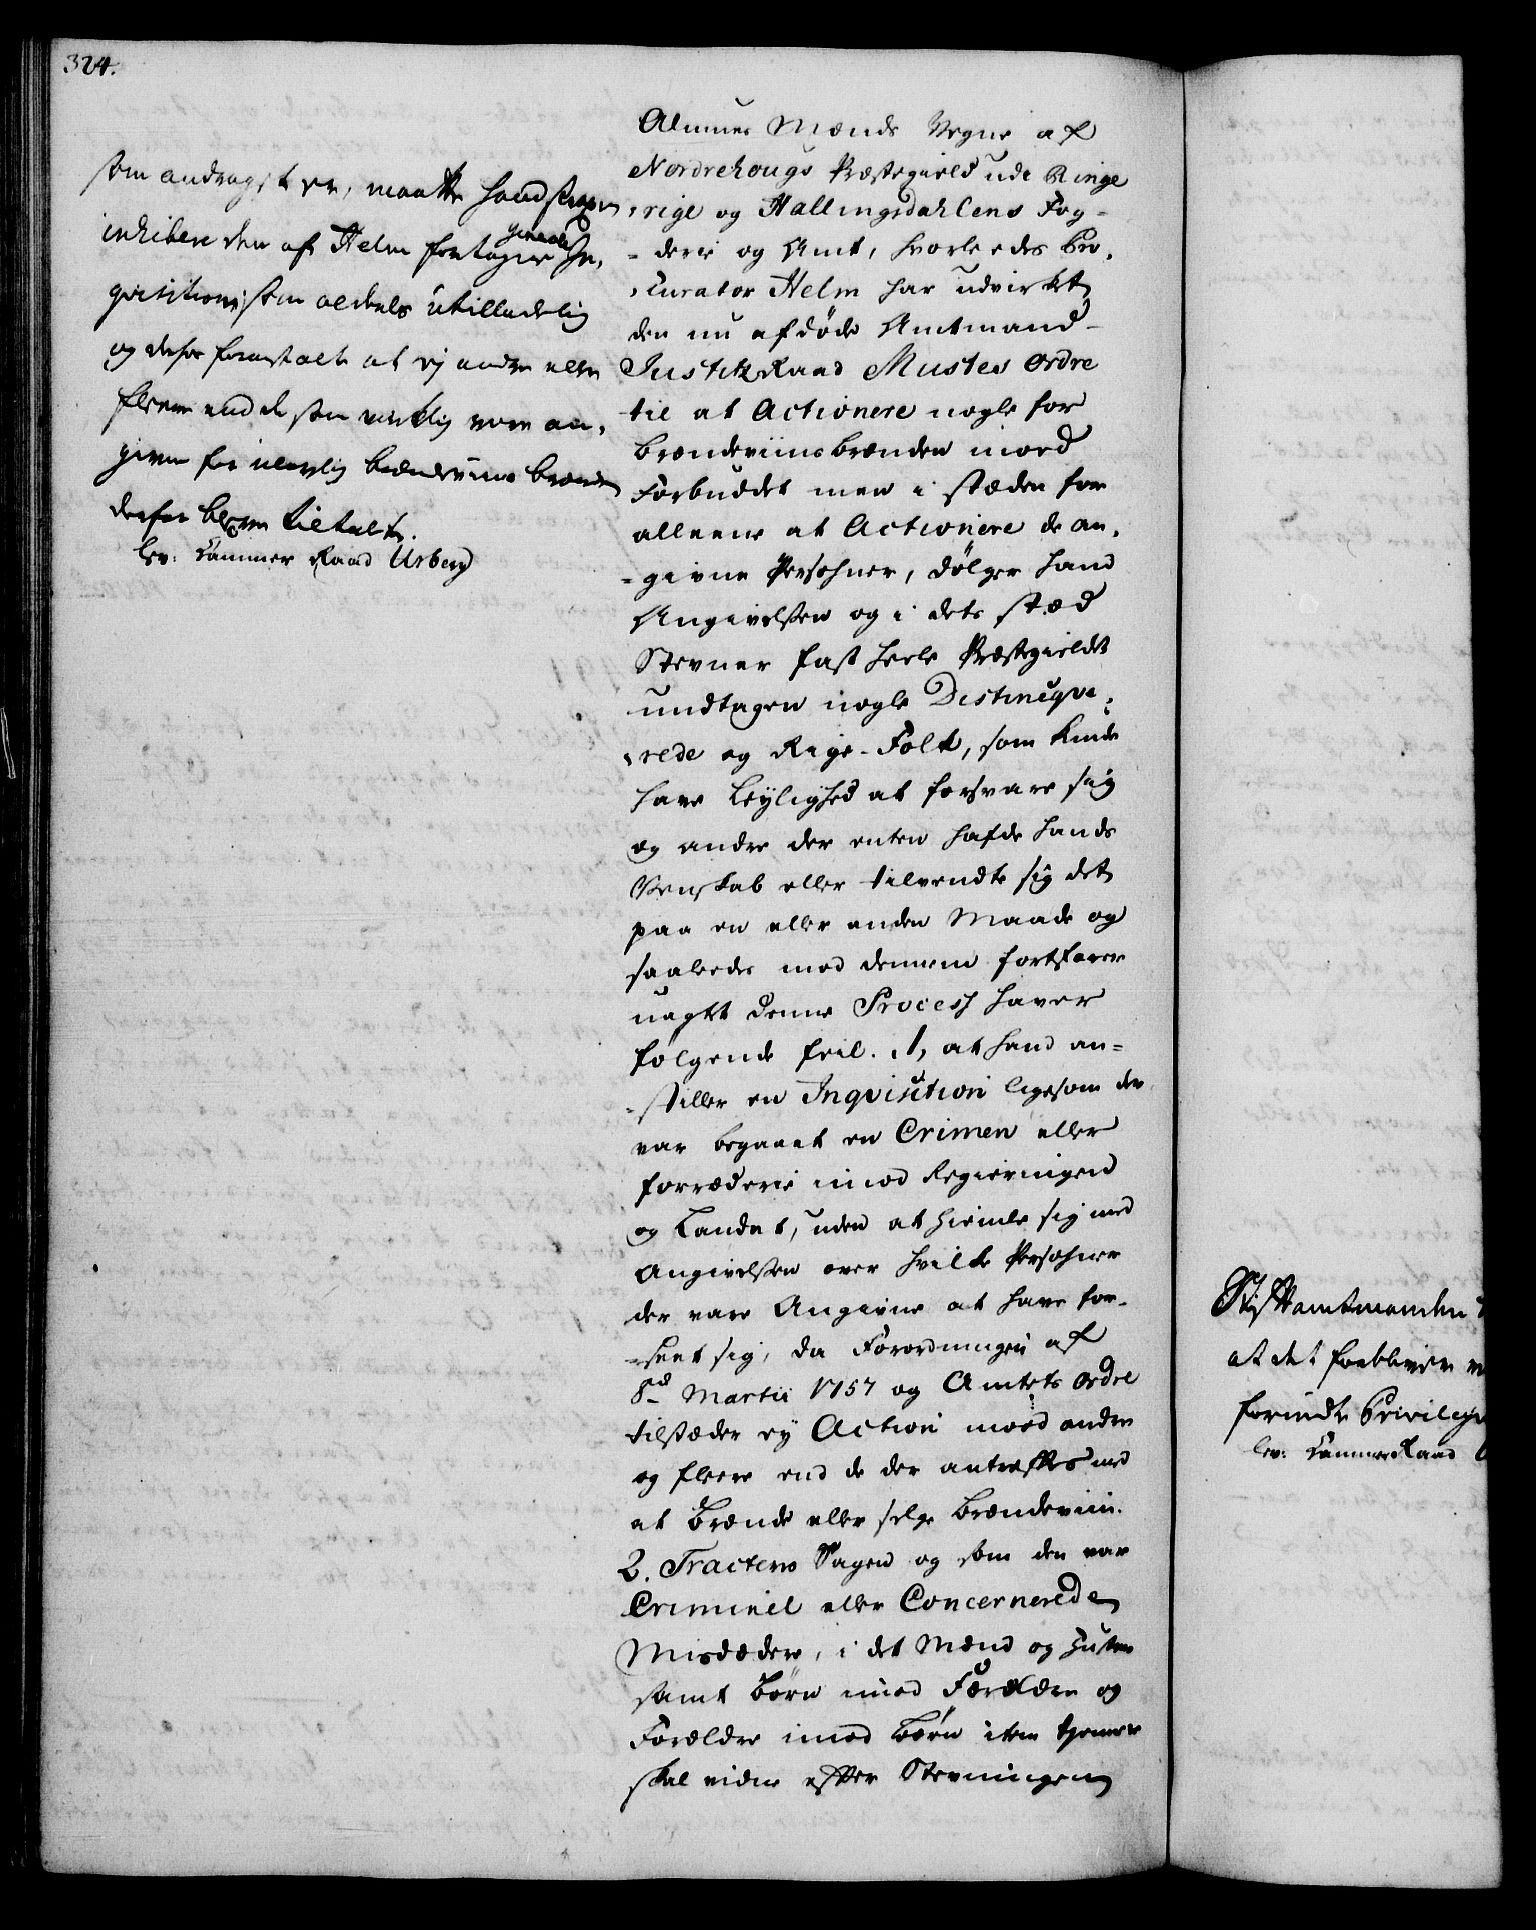 324.
som andraget er, maatte hand strax
inhibere den af Helm foretagne generale In,
qvisition, som aldeles utilladelig
og derfor foranstalte at ej andre eller
fleere end de som virkelig vare an,
given for ulovlig brændeviins brænden
derfor bliver tiltalt.
lev: Cammer Raad Urberg
Almues Mænds Vegne af
Nordrehougs Præstegield udi Ringe
rige og Hallingsdahlens Fog-
derie og Amt, hvorleedes Pro,
curator Helm har udvirket
den nu afdøde Amtmand
Justitz Raad Mustes Ordre
til at Actionere nogle for
Brændeviinsbrænden imod
Forbuddet men i stæden for
alleene at Actionere de an,
givne Persohner, dølger hand
Angivelsen og i dets stæd
Stevner fast heele Præstegieldet
undtagen nogle Distinqve,
rede og Rige-Folk, som kunde
have Leylighed at forsvare sig
og andre der enten hafde hands
Venskab eller tilvendte sig det
paa en eller anden Maade og
saaleedes med dennem fortfarer
uagtet denne Process haver
følgende feil. 1, at hand an=
stiller en Inqvisition ligesom der
var begaaet en Crimen eller
forræderie imod Regieringen
og Landet, uden at hiemle sig med
Angivelsen over hvilke Persohner
der vare Angivne at have for-
seet sig, da Forordningen af
8d Martii 1757 og Amtets Ordre
tilstæder ey Action imod andre
og fleere end de der antræffes med
at Brænde eller selge Brændeviin.
2. Tracteres Sagen og som den var
Criminel eller Concernerede
Misdædere, i det Mænd og Hustrue
samt Børn imod Forældre og
Forældre imod Børn item tienere
skal vidne efter Stevningen
Stiftamtmanden
at det forbliver
forundte Privilegi
lev: Cammer Raad